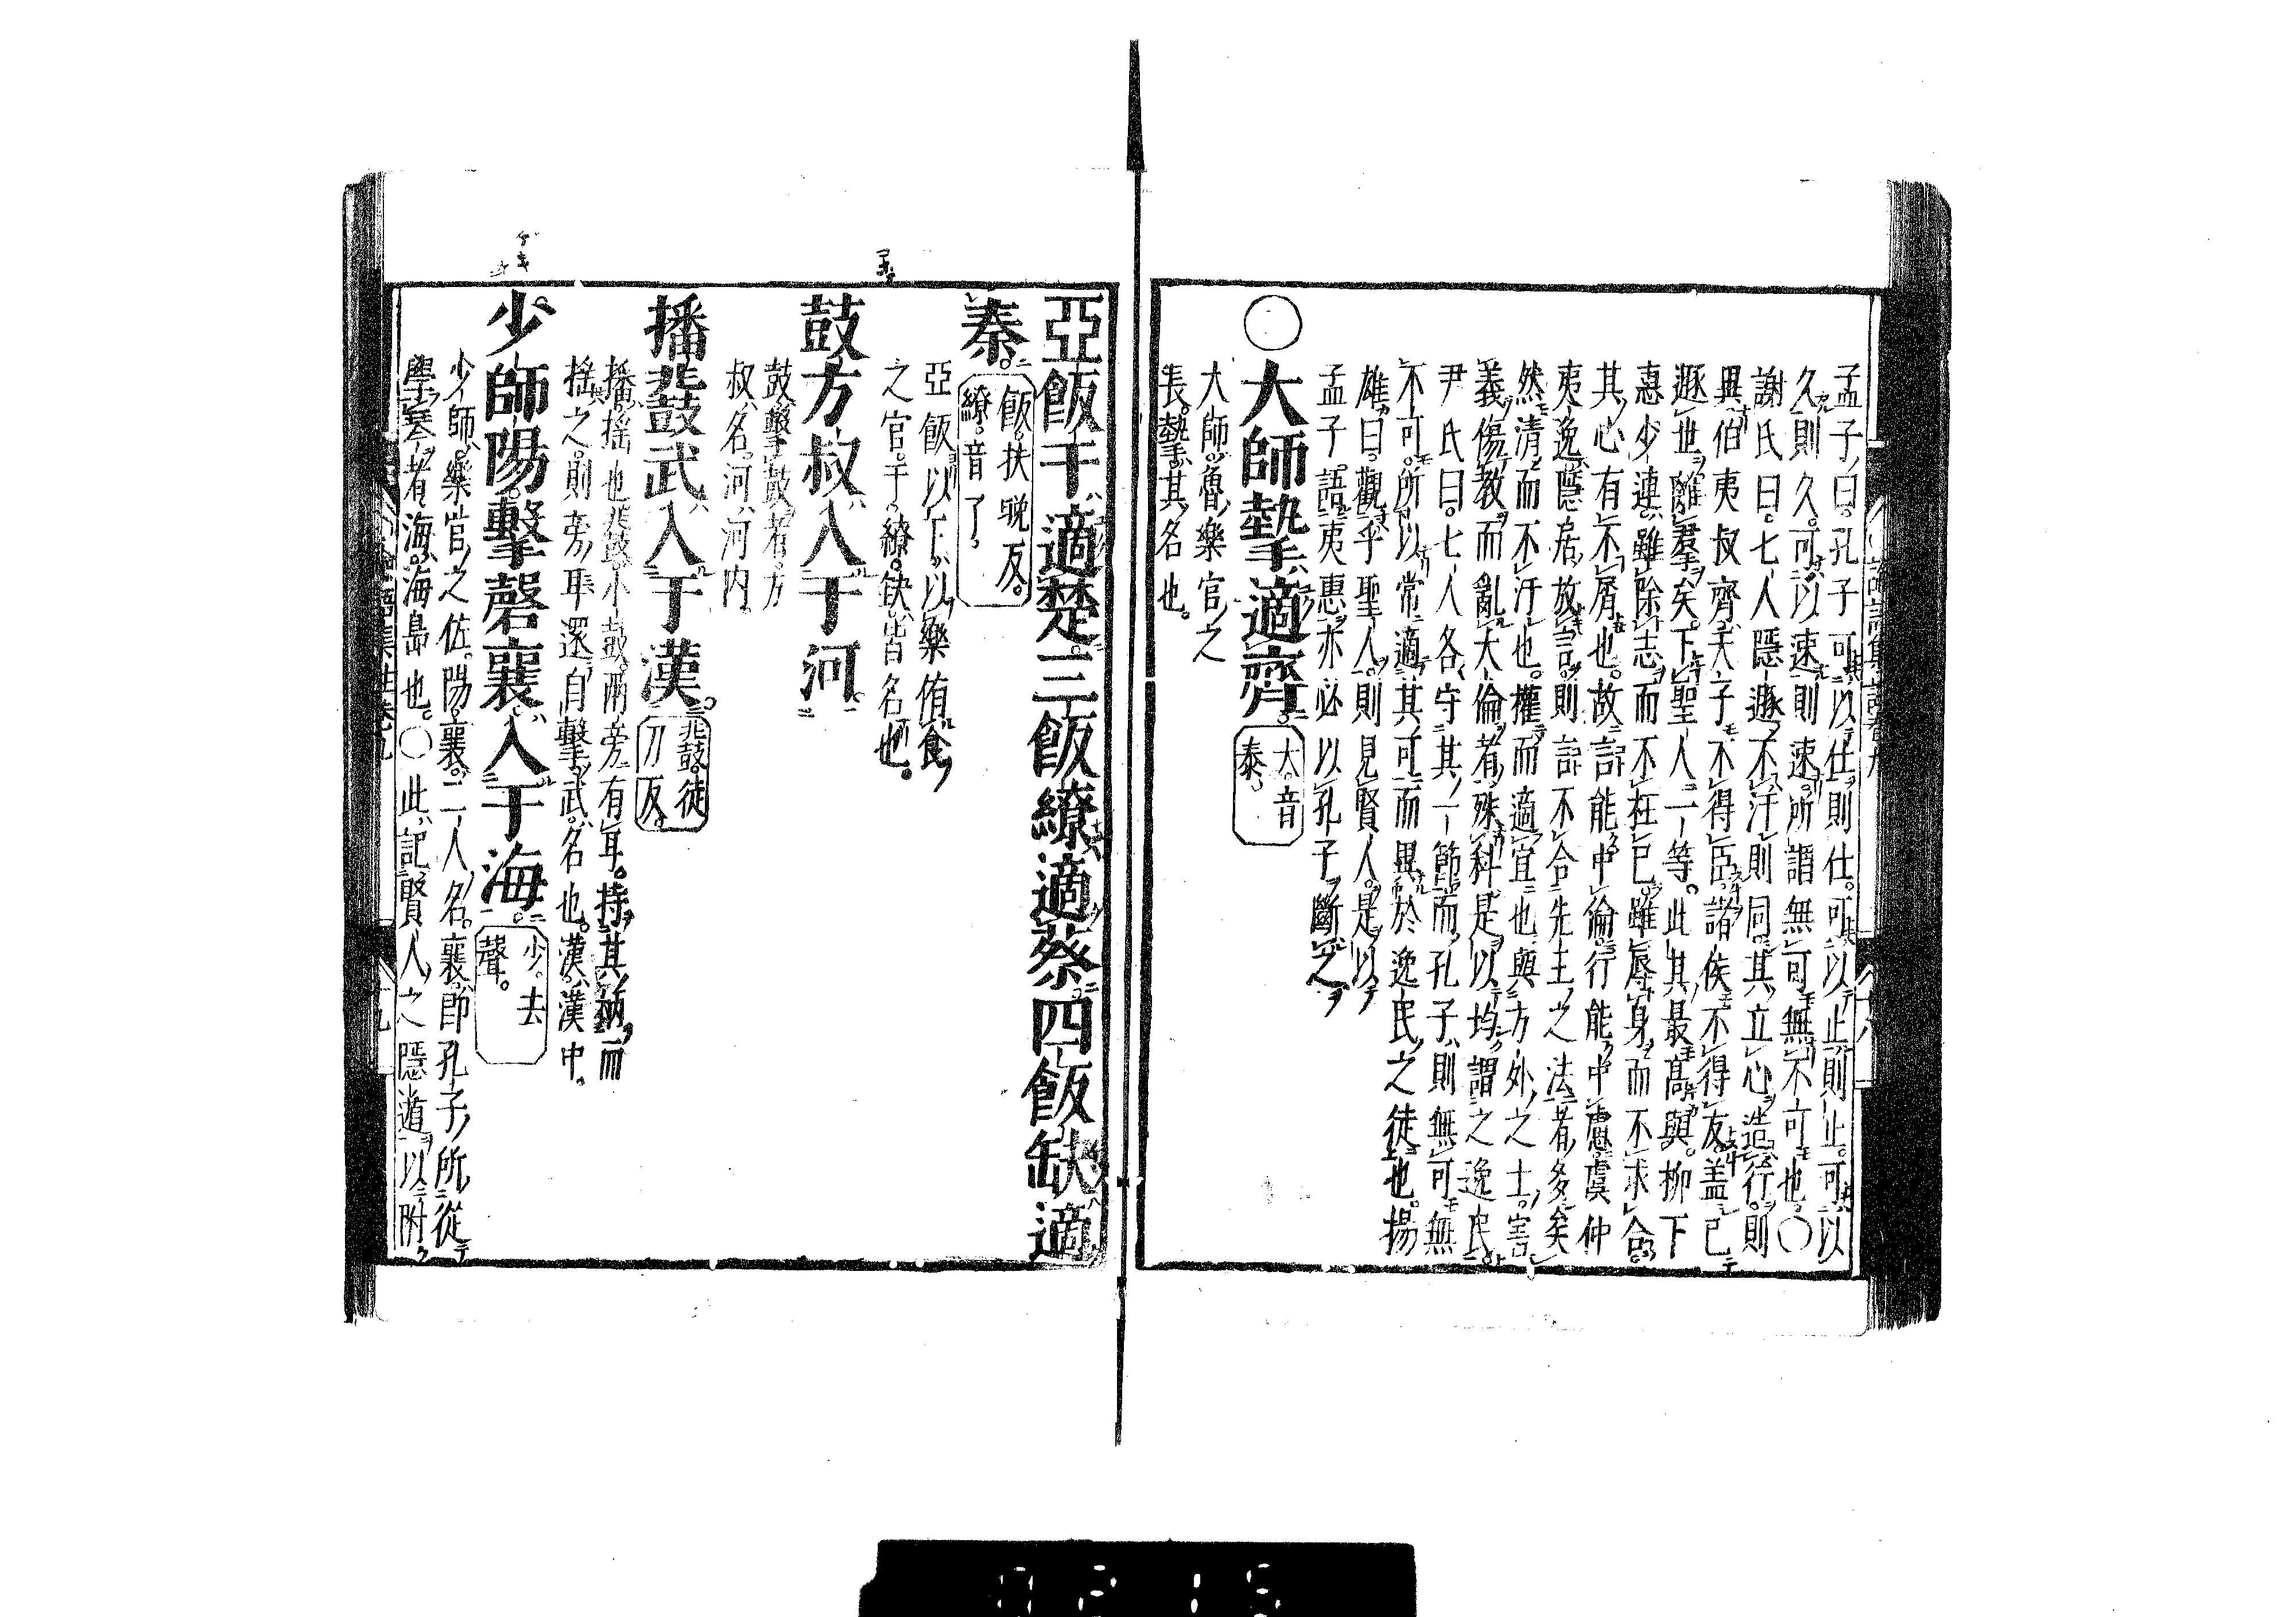 孟子曰。孔子可以仕則仕。可以止則止。可以
久則久。可以速則速。所謂無可無不可也。○
謝氏曰。七人隱遯不汙則同。其立心造行。則
異。伯夷叔齊。天子不得臣。諸侯不得友。蓋已
遯世離羣矣。下聖人一等。此其最高與。柳下
惠少連。雖降志而不枉己。雖辱身而不求合。
其心有不屑也。故言能中倫。行能中慮。虞仲
夷逸隱居放言。則言不合先王之法者多矣
然清而不汙也。權而適宜也。與方外之士。害
義傷教。而亂大倫者。殊科。是以均謂之逸民。
尹氏曰。七人各守其一節。而孔子。則無可無
不可。所以常適其可。而異於逸民之徒也。揚
雄曰。觀乎聖人。則見賢人。是以
孟子。語夷惠。亦必以孔子斷之。
○大師摯適齊。
大。音
泰。
大師。魯樂官之
長。摯。其名也。
亞飯干適楚。三飯繚適蔡。四飯缺適
秦。
飯。扶晚反。
繚。音了。
亞飯以下。以樂侑食
之官。干。繚。缺。皆名也。
鼓方叔入于河。
鼓。擊鼓者。方
叔。名。河。河內。
播鼗武入于漢。
鼗。徒
刀反。
播。搖也。鼗。小鼓。兩旁有耳。持其柄。而
搖之。則旁耳還自擊。武。名也。漢。漢中。
少師陽。擊磬襄。入于海。
少。去
聲。
少師。樂官之佐。陽。襄。二人名。襄。即孔子所從
學琴者。海。海島也。○此記賢人之隱遁。以附